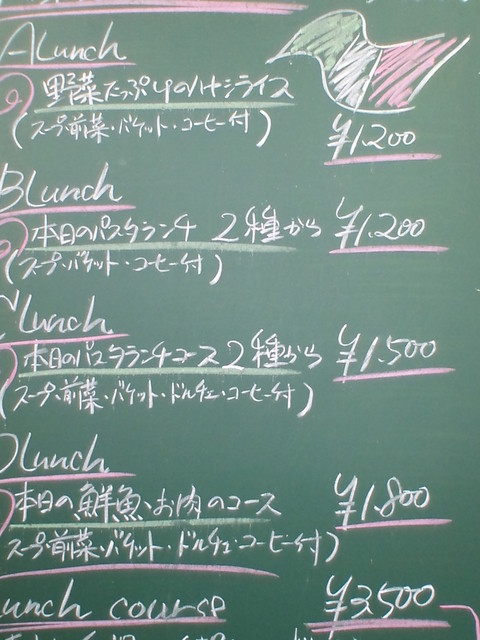 A Lunch
野菜たっぷりのハヤシライス
(スープ・前菜・バケット・コーヒー付)
¥1.200
B Lunch
本日のパスタランチ 2種から ¥1.200
(スープ・バケット・コーヒー付)
C Lunch
本日のパスタランチコース2種から ¥1.500
(スープ・前菜・バケット・ドルチェ・コーヒー付)
D Lunch
本日の鮮魚、お肉のコース ¥1.800
スープ・前菜・バケット・ドルチェ・コーヒー付)
unch course ¥3.500